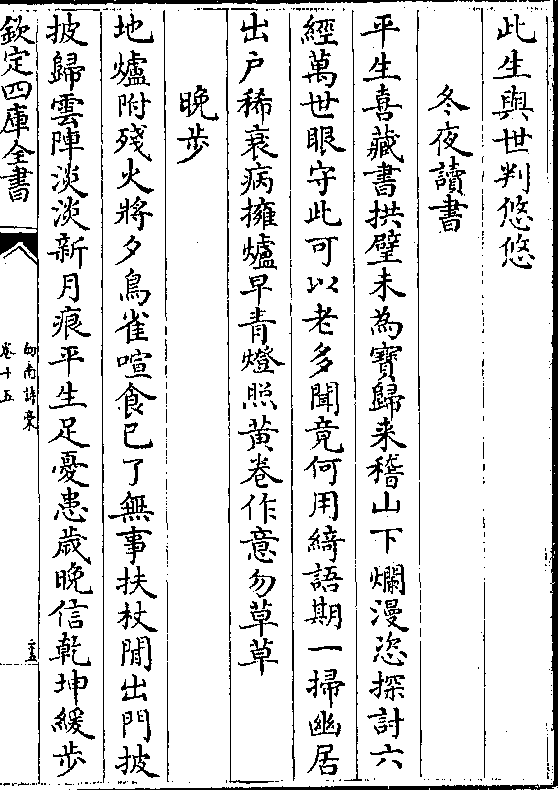 此生與世判悠悠
冬夜讀書
平生喜藏書拱璧未為寶歸来稽山下爛漫恣探討六
經萬世眼守此可以老多聞竟何用綺語期一掃幽居
出户稀衰病擁爐早青燈照黄卷作意勿草草
晚步
地爐附殘火將夕鳥雀喧食已了無事扶杖閒出門披
披歸雲陣淡淡新月痕平生足憂患歳晚信乾坤緩步
欽定四庫全書
劍南詩槀
卷十五